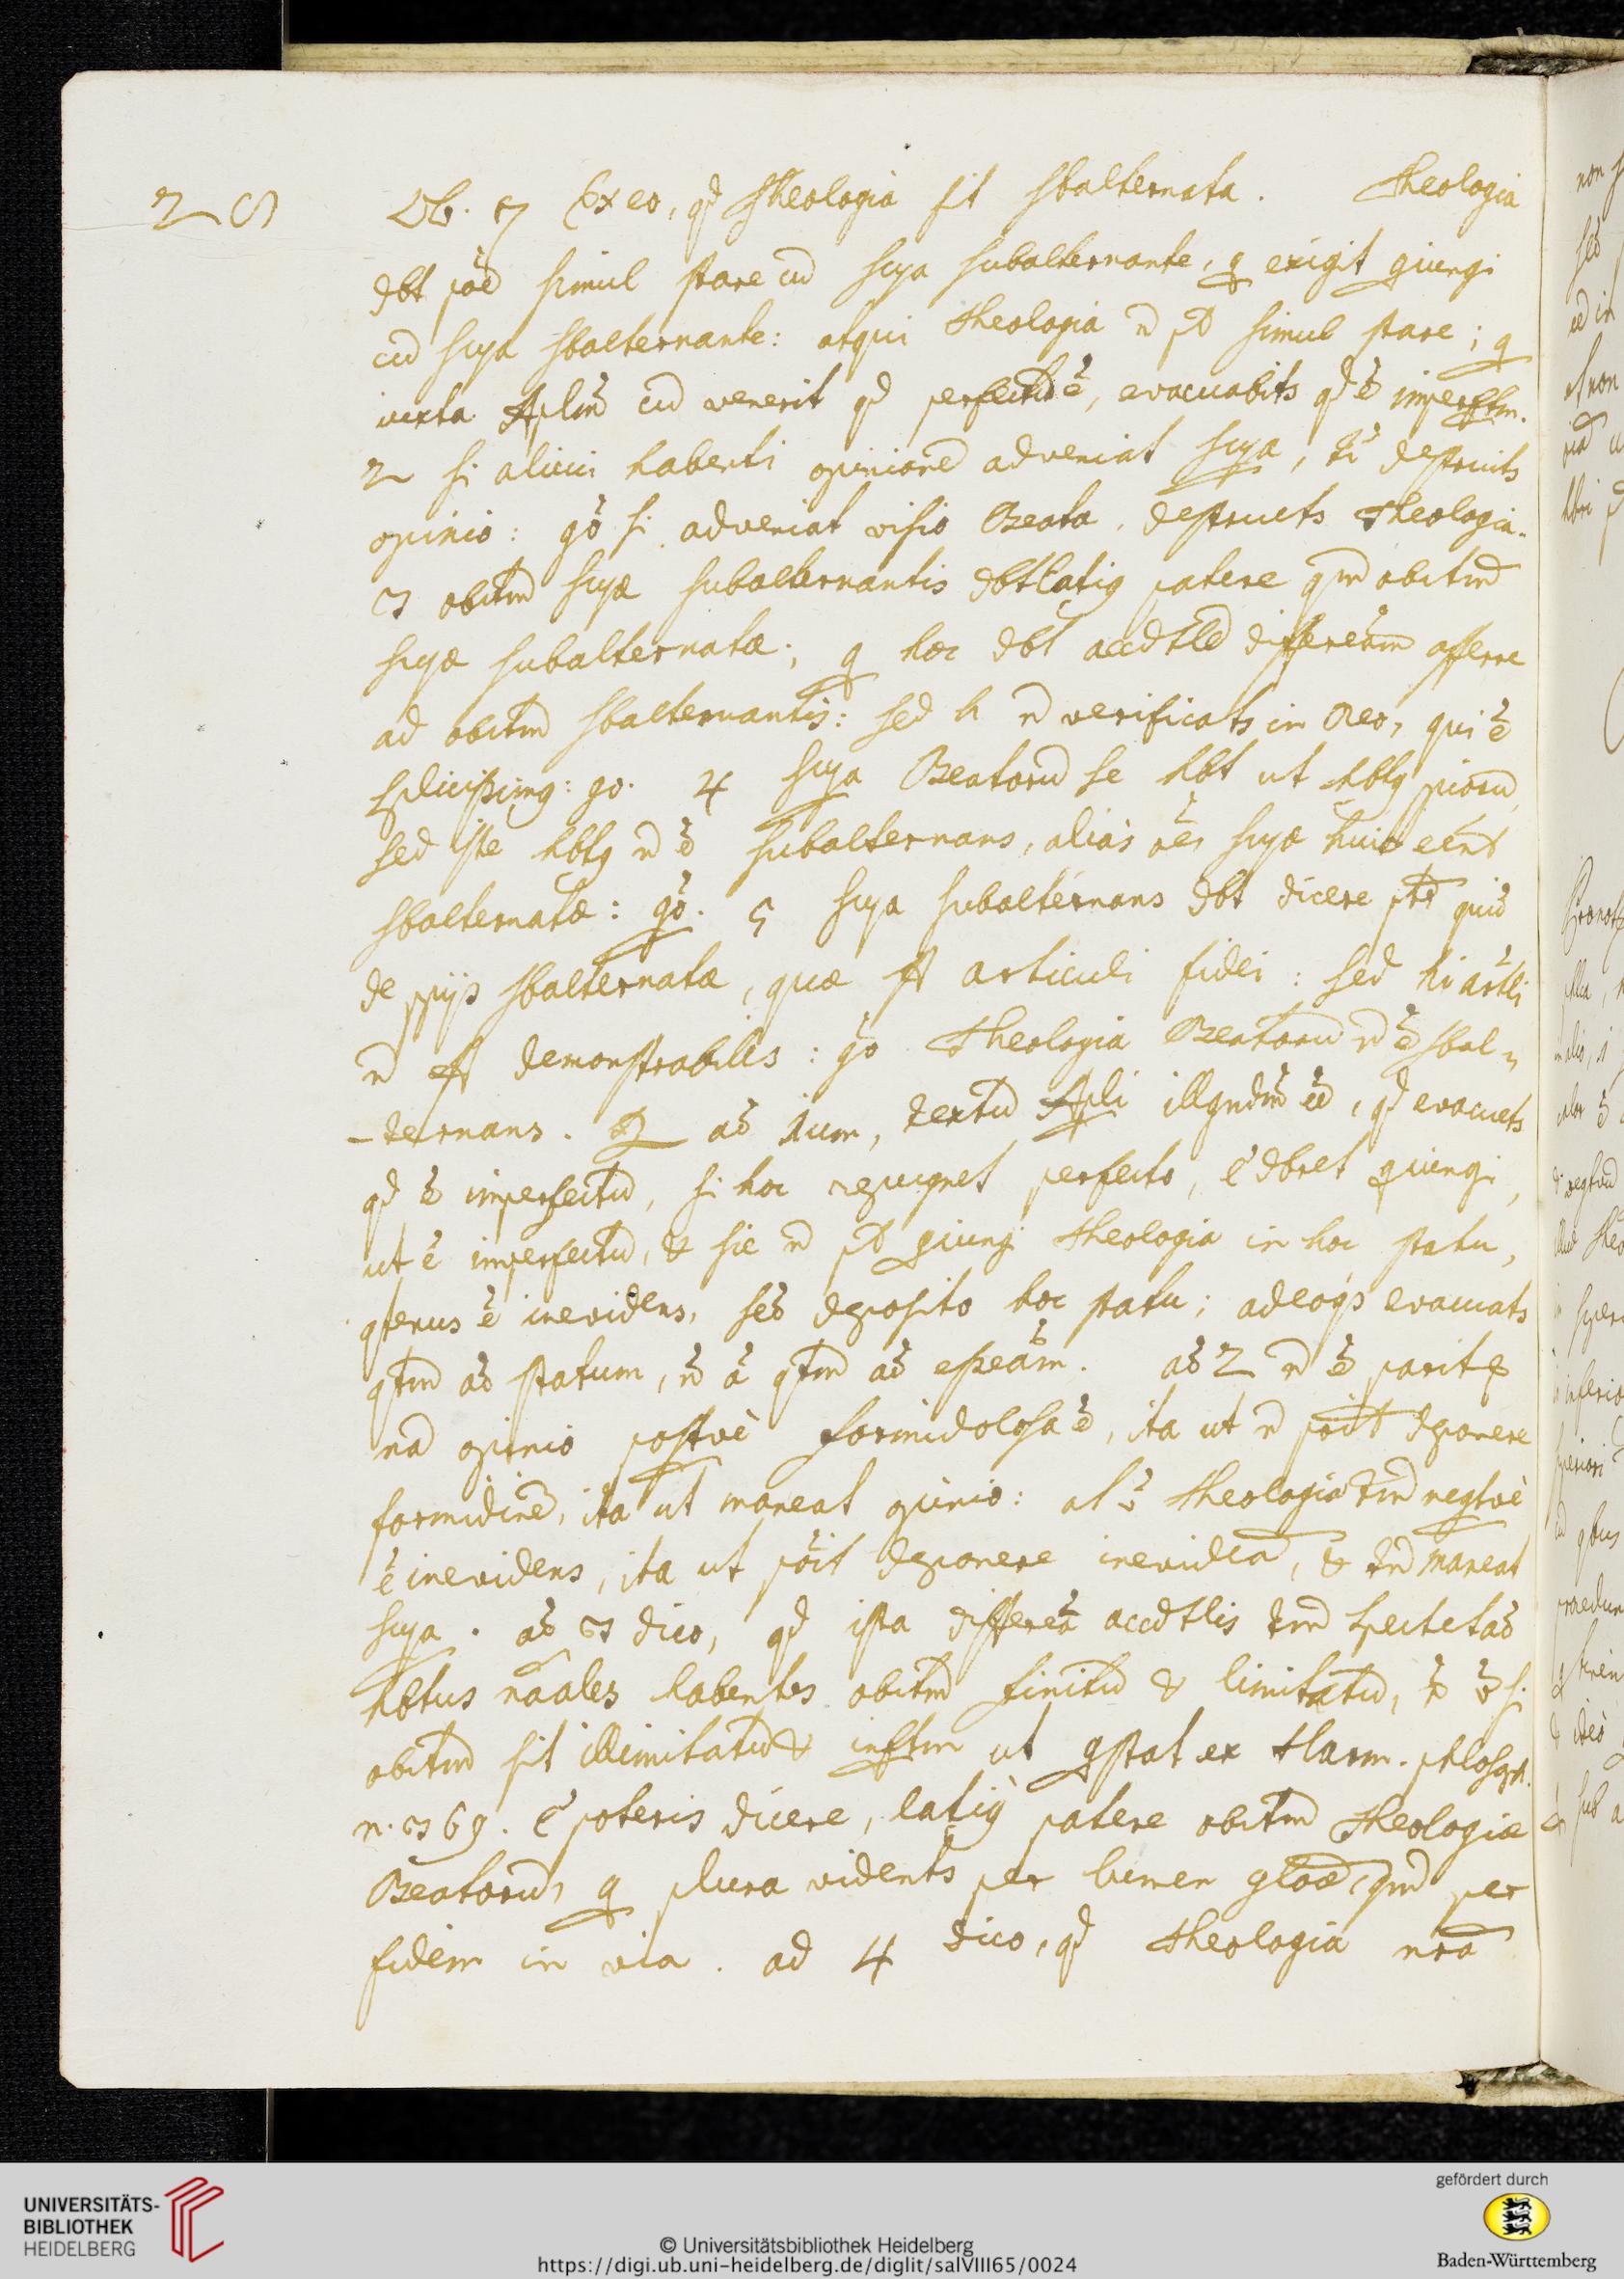 25 Ob. 1 Ex eo, qd Theologia sit sbalternata. Theologia
dbt simul stare cū scya subalternante, q exigit
cū scya sbalternante: atqui Theologia n̄ pt simul stare; q
iuxta Aplm̄ cū venerit qd perfectū ē, evacuabitr qd ē imperftm.
2 si alicui habenti opinionē adveniat scya, destruitr
opinio: gō si adveniat visio Beata, destruetr Theologia.
3 obitm̄ scyæ subalternantis dbt latig patere qm̄ obitm̄
scyæ subalternatæ; q hoc dbt accdtlē afferre
ad obitm̄ sbalternantis: sed h n̄ verificatr in Deo, qui ē
go. 4 scya Beatorū se hbt ut hbtg piorū,
sed iste hbtg n̄ ē subalternans, aliàs oēs scyæ huic eēnt
sbalternatæ: gō. 5 scya subalternans dbt dicere ptr quid
de ppijs sbalternatæ, quæ st articuli fidei: sed hi artli
n̄ st demonstrabiles: gō Theologia Beatorū n̄ ē sbal=
-ternans. R ad 1um, textū Apli, qd evacuetr
qd ē imperfectū, si hoc repugnet perfecto, dbret giungi,
ut ē imperfectū, & sic n̄ pt giungi Theologia in hoc statu,
qtenus ē inevidens, sed deposito hoc statu; adeoqs evacuatr
qtm̄ ad statum, n̄ a qtm̄ ad eßeām. ad 2 n̄ ē parit
nā opinio postvè formidolosa ē, ita ut n̄ poßit deponere
formidinē, ita ut maneat opinio: at Theologia tm̄ negtvè
ē inevidens, ita ut poßit deponere inevidīa, & tm̄ maneat
scya. ad 3 dico, qd ista differēa accdtlis tm̄ spectet ad
hbtus nāales habentes obitm̄ finitū & limitatū, si
obitm̄ sit illimitatū & inftm ut gstat ex Harm. philosoph.
n. 369. poteris dicere, latig patere obitm̄ Theologiæ
Beatorū, q plura videntr per lumen gloæ, qm̄ per
fidem in via. ad 4 dico, qd Theologia nra
UNIVERSITÄTS-
BIBLIOTHEK
HEIDELBERG
© Universitätsbibliothek Heidelberg
https://digi.ub.uni-heidelberg.de/diglit/salVIII65/0024
gefördert durch
Baden-Württemberg